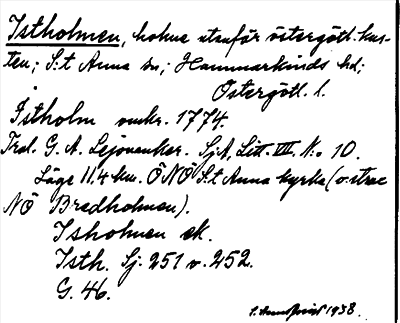 Istholmen, holme utanför östergötl. kus-
ten; S:t Anna sn; Hammarkinds hd;
Östergötl. l.
Istholm omkr. 1774.
Trol. G. A. Lejonanker. SjA, Litt. VIII. No 10.
Läge 11.4 km. ÖNÖ S:t Anna kyrka (o. strax
NÖ Bredholmen).
Isholmen ek.
Isth. Sj. 251 o. 252.
G. 46.
1938.